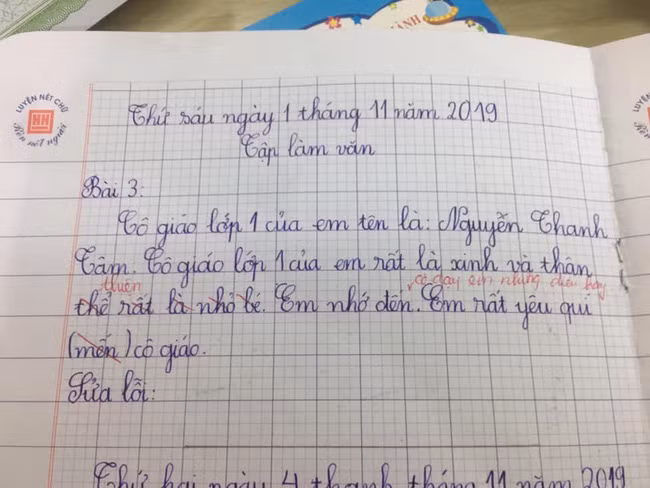 LUYỆN NÉT CHỮ
NH
Rèn nết người
Thứ sáu ngày 1 tháng 11 năm 2019
Tập làm văn
Bài 3:
Cô giáo lớp 1 của em tên là: Nguyễn Thanh
Tâm. Cô giáo lớp 1 của em rất là xinh và thân
thiện
cô dạy em những điều hay
thể rất là nhỏ bé. Em nhớ đến. Em rất yêu quí
(mến) cô giáo.
Sửa lỗi:
Thứ hai ngày 4 thanh tháng 11 năm 2019